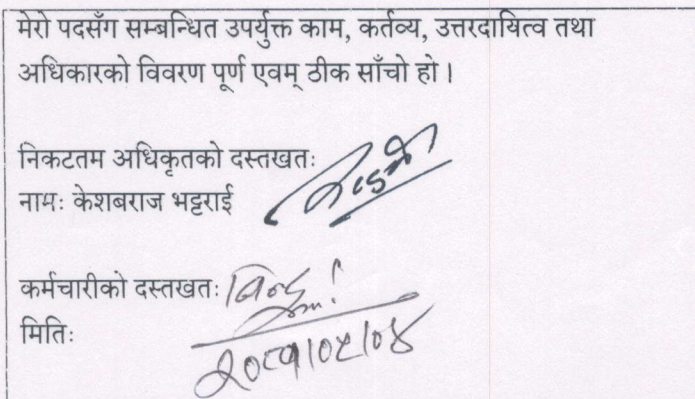 मेरो पदसँग सम्बन्धित उपर्युक्त काम, कर्तव्य, उत्तरदायित्व तथा
अधिकारको विवरण पूर्ण एवम् ठीक साँचो हो ।
निकटतम अधिकृतको दस्तखतः
नामः केशबराज भट्टराई
कर्मचारीको दस्तखतः
मितिः
२०८१/०५/०४